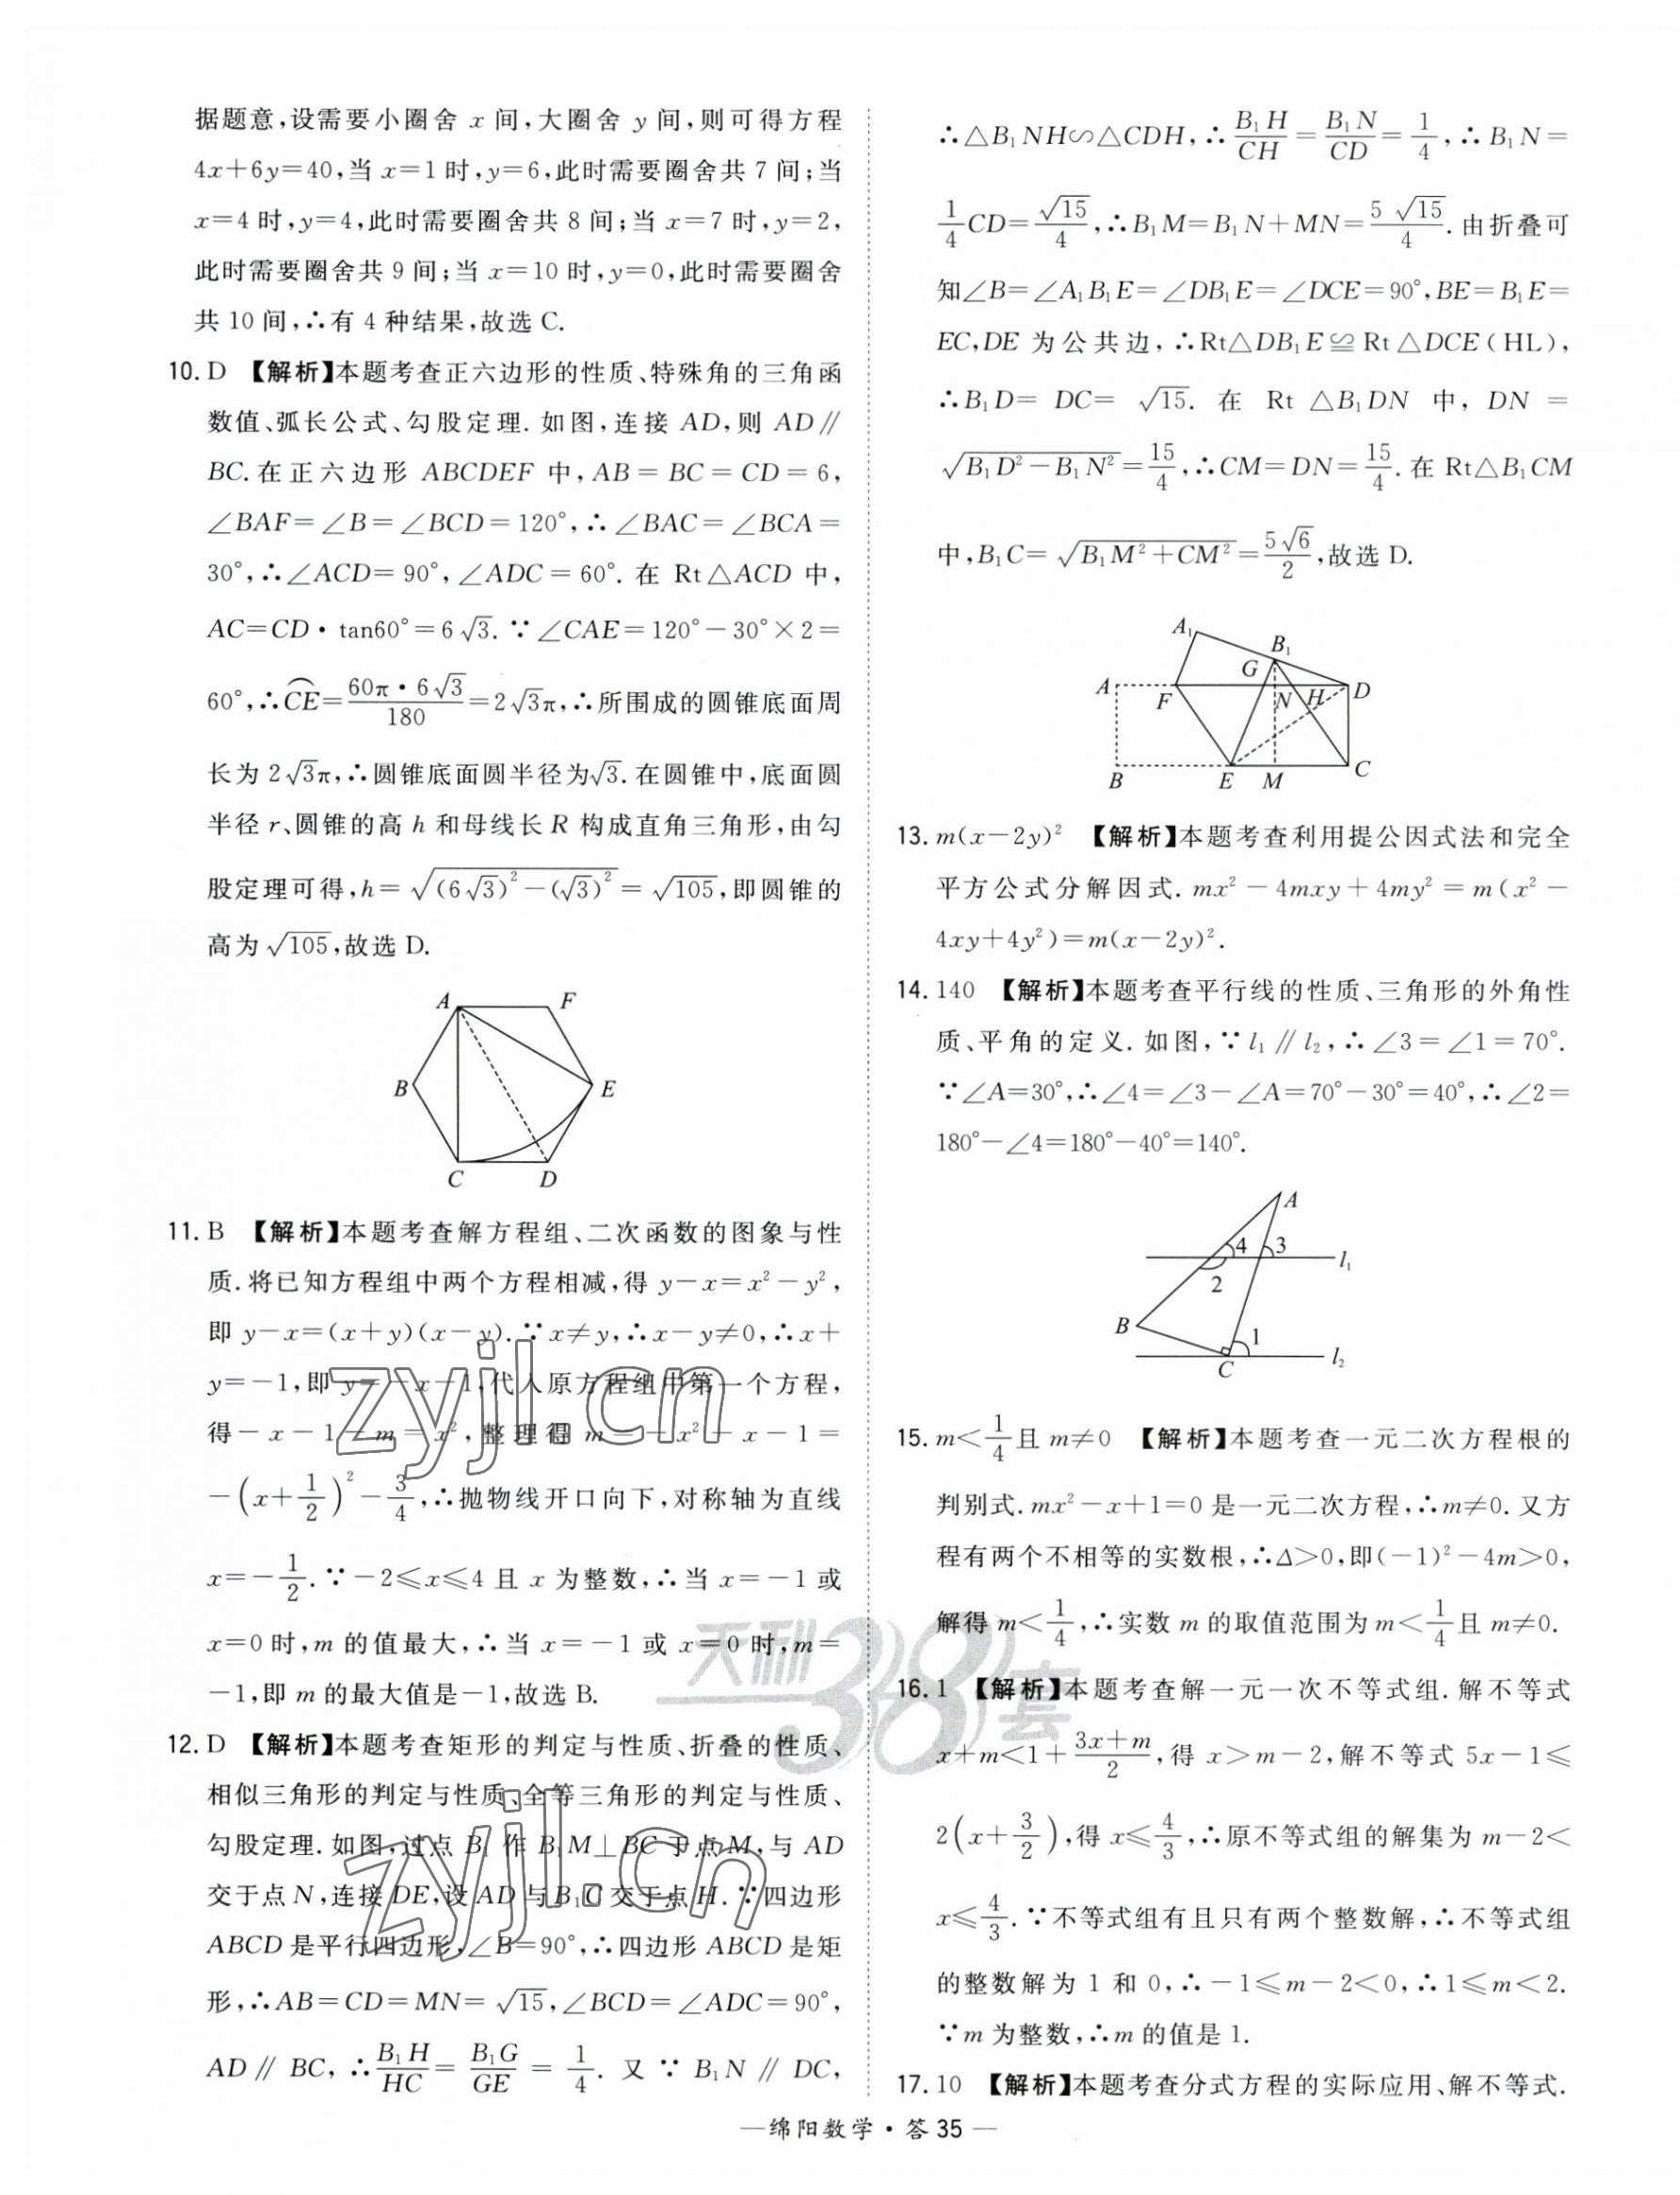 据题意,设需要小圈舍 x 间,大圈舍 y 间,则可得方程
4x+6y=40,当 x=1 时,y=6,此时需要圈舍共 7 间;当
x=4 时,y=4,此时需要圈舍共 8 间;当 x=7 时,y=2,
此时需要圈舍共 9 间;当 x=10 时,y=0,此时需要圈舍
共 10 间,∴有 4 种结果,故选 C.
10. D 【解析】本题考查正六边形的性质、特殊角的三角函
数值、弧长公式、勾股定理. 如图,连接 AD,则 AD∥
BC. 在正六边形 ABCDEF 中,AB=BC=CD=6,
∠BAF=∠B=∠BCD=120°,∴∠BAC=∠BCA=
30°,∴∠ACD=90°,∠ADC=60°. 在 Rt△ACD 中,
AC=CD·tan60°=6√3. ∵∠CAE=120°-30°×2=
60°,∴⌒CE=60π·6√3/180=2√3π,∴所围成的圆锥底面周
长为 2√3π,∴圆锥底面圆半径为√3. 在圆锥中,底面圆
半径 r、圆锥的高 h 和母线长 R 构成直角三角形,由勾
股定理可得,h=√((6√3)²-(√3)²)=√105,即圆锥的
高为√105,故选 D.
A F
B E
C D
11. B 【解析】本题考查解方程组、二次函数的图象与性
质. 将已知方程组中两个方程相减,得 y-x=x²-y²,
即 y-x=(x+y)(x-y). ∵x≠y,∴x-y≠0,∴x+
y=-1,即 y=-x-1,代入原方程组中第一个方程,
得-x-1-m=x²,整理得 m=-x²-x-1=
-(x+1/2)²-3/4,∴抛物线开口向下,对称轴为直线
x=-1/2. ∵-2≤x≤4 且 x 为整数,∴当 x=-1 或
x=0 时,m 的值最大,∴当 x=-1 或 x=0 时,m=
-1,即 m 的最大值是-1,故选 B.
12. D 【解析】本题考查矩形的判定与性质、折叠的性质、
相似三角形的判定与性质、全等三角形的判定与性质、
勾股定理. 如图,过点 B₁ 作 B₁M⊥BC 于点 M,与 AD
交于点 N,连接 DE,设 AD 与 B₁C 交于点 H. ∵四边形
ABCD 是平行四边形,∠B=90°,∴四边形 ABCD 是矩
形,∴AB=CD=MN=√15,∠BCD=∠ADC=90°,
AD∥BC,∴B₁H/HC=B₁G/GE=1/4. 又∵B₁N∥DC,
∴△B₁NH∽△CDH,∴B₁H/CH=B₁N/CD=1/4,∴B₁N=
1/4CD=√15/4,∴B₁M=B₁N+MN=5√15/4. 由折叠可
知∠B=∠A₁B₁E=∠DB₁E=∠DCE=90°,BE=B₁E=
EC,DE 为公共边,∴Rt△DB₁E≌Rt△DCE(HL),
∴B₁D=DC=√15. 在 Rt△B₁DN 中,DN=
√(B₁D²-B₁N²)=15/4,∴CM=DN=15/4. 在 Rt△B₁CM
中,B₁C=√(B₁M²+CM²)=5√6/2,故选 D.
A₁ B₁
G
A F N H D
B E M C
13. m(x-2y)² 【解析】本题考查利用提公因式法和完全
平方公式分解因式. mx²-4mxy+4my²=m(x²-
4xy+4y²)=m(x-2y)².
14. 140 【解析】本题考查平行线的性质、三角形的外角性
质、平角的定义. 如图,∵l₁∥l₂,∴∠3=∠1=70°.
∵∠A=30°,∴∠4=∠3-∠A=70°-30°=40°,∴∠2=
180°-∠4=180°-40°=140°.
A
4 3
2 l₁
B 1
C l₂
15. m<1/4且 m≠0 【解析】本题考查一元二次方程根的
判别式. mx²-x+1=0 是一元二次方程,∴m≠0. 又方
程有两个不相等的实数根,∴Δ>0,即(-1)²-4m>0,
解得 m<1/4,∴实数 m 的取值范围为 m<1/4且 m≠0.
16. 1 【解析】本题考查解一元一次不等式组. 解不等式
x+m<1+(3x+m)/2,得 x>m-2,解不等式 5x-1≤
2(x+3/2),得 x≤4/3,∴原不等式组的解集为 m-2<
x≤4/3. ∵不等式组有且只有两个整数解,∴不等式组
的整数解为 1 和 0,∴-1≤m-2<0,∴1≤m<2.
∵m 为整数,∴m 的值是 1.
17. 10 【解析】本题考查分式方程的实际应用、解不等式.
—绵阳数学·答 35—
zyjl.cn
天利38套
zyjl.cn